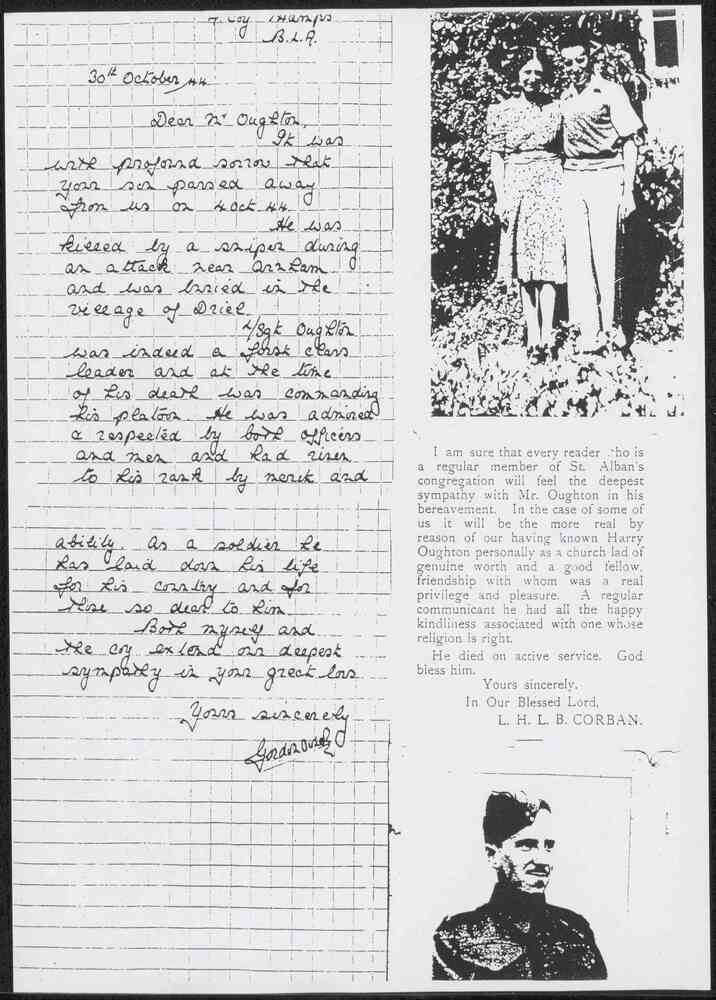 7. Coy 1 Hamps
B.L.A.
30th October 44
Dear Mr Oughton,
It was
with profound sorrow that
your son passed away
from us on 4 Oct. 44.
He was
killed by a sniper during
an attack near Arnham
and was buried in the
village of Driel.
L/Sgt Oughton
was indeed a first class
leader and at the time
of his death was commanding
his platoon. He was admired
& respected by both officers
and men and had risen
to his rank by merit and
ability. As a soldier he
has laid down his life
for his country and for
those so dear to him.
Both myself and
the coy extend our deepest
sympathy in your great loss
Yours sincerely
Gordon
I am sure that every reader who is
a regular member of St. Alban's
congregation will feel the deepest
sympathy with Mr. Oughton in his
bereavement. In the case of some of
us it will be the more real by
reason of our having known Harry
Oughton personally as a church lad of
genuine worth and a good fellow,
friendship with whom was a real
privilege and pleasure. A regular
communicant he had all the happy
kindliness associated with one whose
religion is right.
He died on active service. God
bless him.
Yours sincerely,
In Our Blessed Lord,
L. H. L. B. CORBAN.